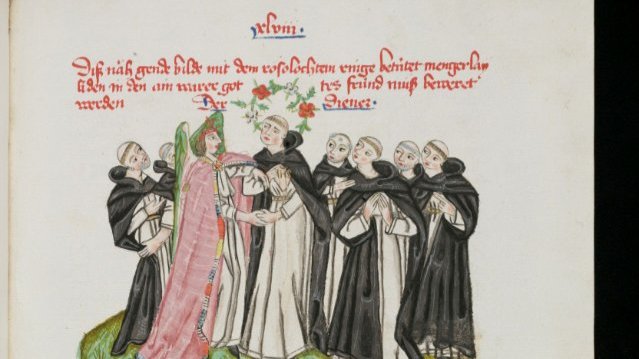 xlviii.
Diß näh gende bilde mit dem rosolochtem ringe betütet menger lay
liden in den ain warer got tes fründ muß beweret
werden Der Diener.